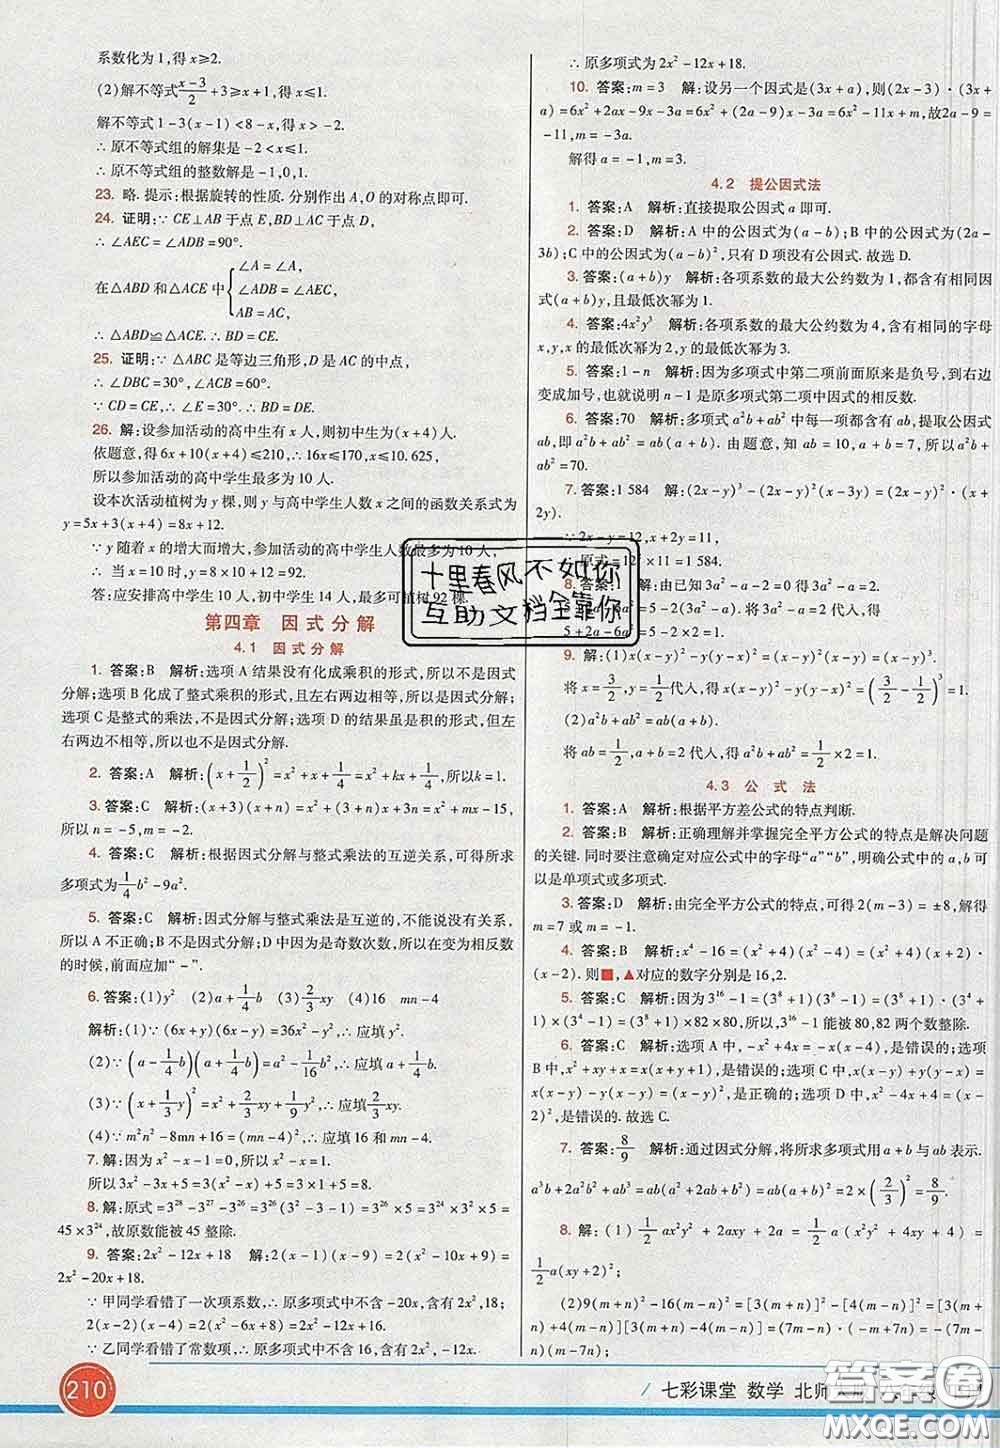 系数化为1,得x≥2.
(2)解不等式(x-3)/2+3≥x+1,得x≤1.
解不等式1-3(x-1)<8-x,得x>-2.
∴原不等式组的解集是-2<x≤1.
∴原不等式组的整数解是-1,0,1.
23. 略.提示:根据旋转的性质.分别作出A,O的对称点即可.
24. 证明:∵CE⊥AB于点E,BD⊥AC于点D,
∴∠AEC=∠ADB=90°.
∠A=∠A,
在△ABD和△ACE中 ∠ADB=∠AEC,
AB=AC,
∴△ABD≌△ACE.∴BD=CE.
25. 证明:∵△ABC是等边三角形,D是AC的中点,
∴∠DBC=30°,∠ACB=60°.
∵CD=CE,∴∠E=30°.∴BD=DE.
26. 解:设参加活动的高中生有x人,则初中生有(x+4)人.
依题意,得6x+10(x+4)≤210,∴16x≤170.∴x≤10.625,
所以参加活动的高中学生最多为10人.
设本次活动植树为y棵,则y与高中学生人数x之间的函数关系式为
y=5x+3(x+4)=8x+12.
∵y随着x的增大而增大,参加活动的高中学生人数最多为10人,
∴当x=10时,y=8×10+12=92.
答:应安排高中学生10人,初中学生14人,最多可植树92棵.
第四章 因式分解
4.1 因式分解
1. 答案:B 解析:选项A结果没有化成乘积的形式,所以不是因式
分解;选项B化成了整式乘积的形式,且左右两边相等,所以是因式分解;
选项C是整式的乘法,不是因式分解;选项D的结果虽是积的形式,但左
右两边不相等,所以也不是因式分解.
2. 答案:A 解析:(x+1/2)²=x²+x+1/4=x²+kx+1/4,所以k=1.
3. 答案:C 解析:(x+3)(x+n)=x²+(3+n)x+3n=x²+mx-15,
所以n=-5,m=-2.
4. 答案:C 解析:根据因式分解与整式乘法的互逆关系,可得所求
多项式为1/4b²-9a².
5. 答案:C 解析:因式分解与整式乘法是互逆的,不能说没有关系,
所以A不正确;B不是因式分解;D中因为是奇数次数,所以在变为相反数
的时候,前面应加“-”.
6. 答案:(1)y² (2)a+1/4b (3)2/3xy (4)16 mn-4
解析:(1)∵(6x+y)(6x-y)=36x²-y²,∴应填y².
(2)∵(a-1/4b)(a+1/4b)=a²-1/16b²,∴应填a+1/4b.
(3)∵(x+1/3y)²=x²+2/3xy+1/9y²,∴应填2/3xy.
(4)∵m²n²-8mn+16=(mn-4)²,∴应填16和mn-4.
7. 解:因为x²-x-1=0,所以x²-x=1.
所以3x²-3x+5=3(x²-x)+5=3×1+5=8.
8. 解:原式=3²⁸-3²⁷-3²⁶=3²⁶(3²-3-1)=3²⁶×5=3²⁴×3²×5=
45×3²⁴,故原数能被45整除.
9. 答案:2x²-12x+18 解:2(x-1)(x-9)=2(x²-10x+9)=
2x²-20x+18.
∵甲同学看错了一次项系数,∴原多项式中不含-20x,含2x²,18;
2(x-2)(x-4)=2(x²-6x+8)=2x²-12x+16.
∵乙同学看错了常数项,∴原多项式中不含16,含2x²,-12x.
∴原多项式为2x²-12x+18.
10. 答案:m=3 解:设另一个因式是(3x+a),则(2x-3)·(3x+
a)=6x²+2ax-9x-3a=6x²+(2a-9)x-3a=6x²-11x+m,故2a-9=
-11,m=-3a.
解得a=-1,m=3.
4.2 提公因式法
1. 答案:A 解析:直接提取公因式a即可.
2. 答案:D 解析:A中的公因式为(2a-b);B中的公因式为(2a-
3b);C中的公因式为(a-b)²,只有D项没有公因式.故选D.
3. 答案:(a+b)y 解析:各项系数的最大公约数为1,都含有相同因
式(a+b)y,且最低次幂为1.
4. 答案:4x²y³ 解析:各项系数的最大公约数为4,含有相同的字母
x,y,x的最低次幂为2,y的最低次幂为3.
5. 答案:1-n 解析:因为多项式中第二项前面原来是负号,到右边
变成加号,也就说明n-1是原多项式第二项中因式的相反数.
6. 答案:70 解析:多项式a²b+ab²中每一项都含有ab,提取公因式
ab,即a²b+ab²=ab(a+b).由题意,知ab=10,a+b=7,所以a²b+
ab²=70.
7. 答案:1 584 解:(2x-y)³-(2x-y)²(x-3y)=(2x-y)²·(x+
2y).
∵2x-y=12,x+2y=11,
∴原式=12²×11=1 584.
5+2a-6a²=
9. 解:(1)x(x-y)²-y(x-y)²=(x-y)³.
将x=3/2,y=1/2代入,得x(x-y)²-y(x-y)²=(3/2-1/2)³=1.
(2)a²b+ab²=ab(a+b).
将ab=1/2,a+b=2代入,得a²b+ab²=1/2×2=1.
4.3 公式法
1. 答案:A 解析:根据平方差公式的特点判断.
2. 答案:B 解析:正确理解并掌握完全平方公式的特点是解决问题
的关键.同时要注意确定对应公式中的字母“a”“b”,明确公式中的a,b可
以是单项式或多项式.
3. 答案:D 解析:由完全平方公式的特点,可得2(m-3)=±8,解得
m=7或m=-1.
4. 答案:B 解析:x⁴-16=(x²+4)(x²-4)=(x²+4)(x+2)
·(x-2).则■,▲对应的数字分别是16,2.
5. 答案:C 解析:因为3¹⁶-1=(3⁸+1)(3⁸-1)=(3⁸+1)·(3⁴
+1)(3⁴-1)=(3⁸+1)×82×80,所以,3¹⁶-1能被80,82两个数整除.
6. 答案:C 解析:选项A中,-x²+4x=-x(x-4),是错误的;选项B
中,x²+xy+x=x(x+y+1),是错误的;选项C中,x(x-y)+y(y-x)=
x(x-y)-y(x-y)=(x-y)²,是正确的;选项D中,x²-4x+4=(x-
2)²,是错误的.故选C.
7. 答案:8/9 解析:通过因式分解,将所求多项式用a+b与ab表示.
a³b+2a²b²+ab³=ab(a²+2ab+b²)=ab(a+b)²=2×(2/3)²=8/9.
8. 解:(1)1/2ax²y²+2axy+2a=1/2a(x²y²+4xy+4)=
1/2a(xy+2)²;
(2)9(m+n)²-16(m-n)²=[3(m+n)]²-[4(m-n)]²=[3(m+
n)+4(m-n)][3(m+n)-4(m-n)]=(7m-n)·(-m+7n)=-(7m-
n)(m-7n);
十里春风不如你
互助文档全靠你
210
七彩课堂 数学 北师
答案圈
MXQE.COM